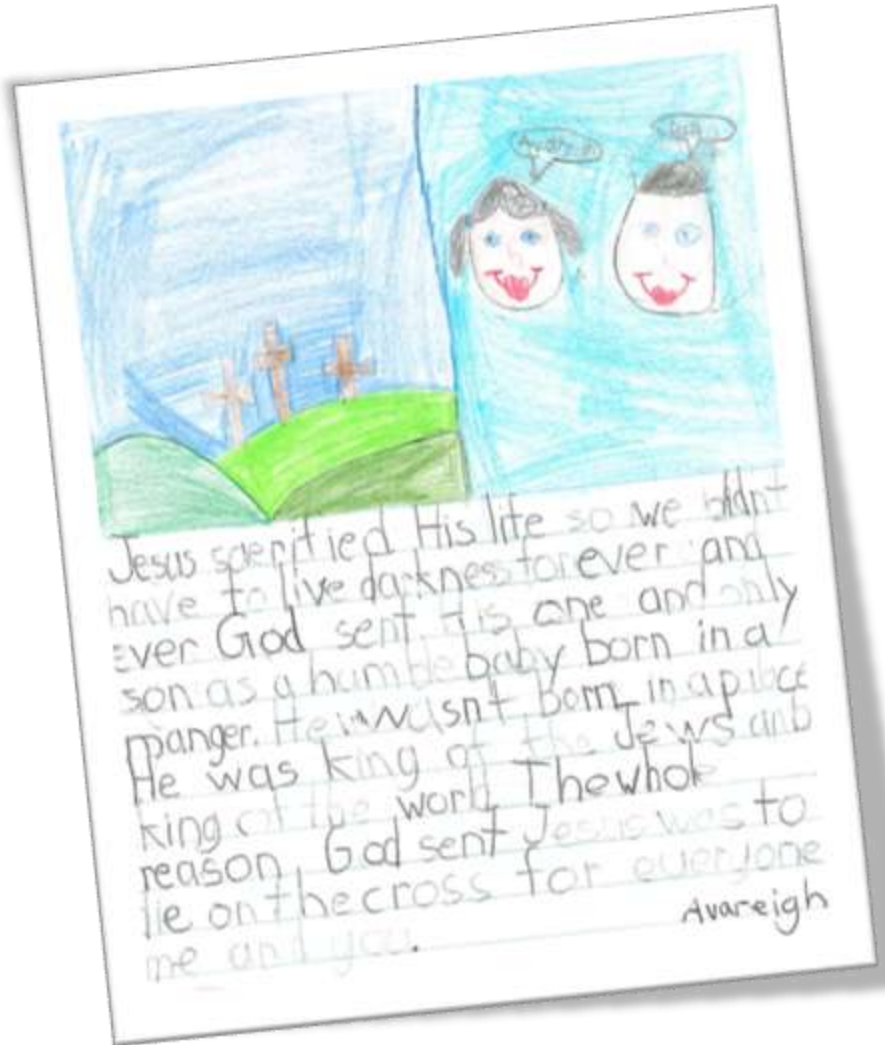 Avareigh
Jesus sacrified His life so we didnt
have to live darkness for ever and
ever God sent His one and only
son as a humble baby born in a
manger. He wasnt born in a place
He was king of the Jews and
king of the world The whole
reason God sent Jesus was to
die on the cross for everyone
me and you.
Avareigh